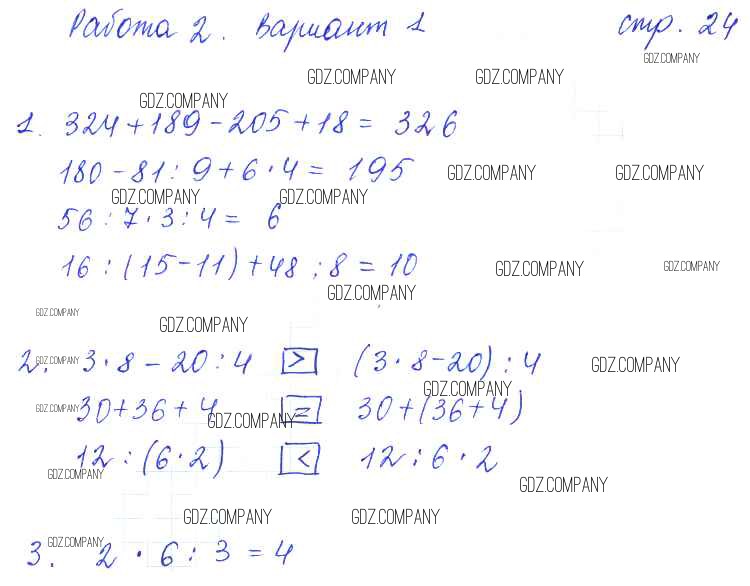 Работа 2. Вариант 1 стр. 24
GDZ.COMPANY
GDZ.COMPANY GDZ.COMPANY
GDZ.COMPANY
1. 324+189-205+18= 326
180-81:9+6·4= 195 GDZ.COMPANY GDZ.COMPANY
GDZ.COMPANY GDZ.COMPANY
56:7·3:4= 6
16:(15-11)+48:8=10 GDZ.COMPANY GDZ.COMPANY
GDZ.COMPANY
GDZ.COMPANY
GDZ.COMPANY
2. GDZ.COMPANY 3·8-20:4 > (3·8-20):4 GDZ.COMPANY
GDZ.COMPANY
GDZ.COMPANY 30+36+4 = 30+(36+4)
GDZ.COMPANY
12:(6·2) < 12:6·2
GDZ.COMPANY GDZ.COMPANY
GDZ.COMPANY GDZ.COMPANY
3. GDZ.COMPANY 2·6:3=4